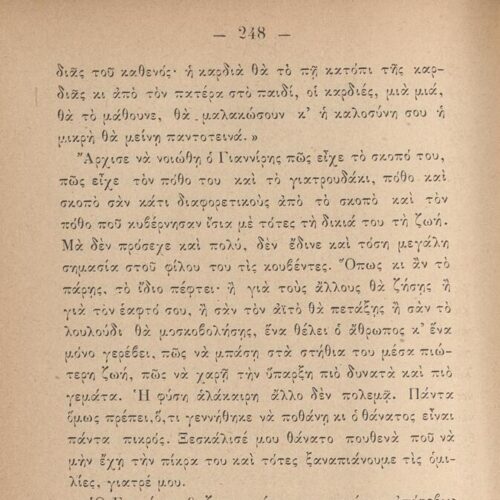 — 248 —
διᾶς τοῦ καθενός· ἡ καρδιὰ θὰ τὸ πῇ κατόπι τῆς καρ-
διᾶς κι ἀπὸ τὸν πατέρα στὸ παιδί, οἱ καρδιές, μιὰ μιά,
θὰ τὸ μάθουνε, θὰ μαλακώσουν κ’ ἡ καλοσύνη σου ἡ
μικρὴ θὰ μείνῃ παντοτεινά.»
Ἄρχισε νὰ νοιώθῃ ὁ Γιαννίρης πῶς εἶχε τὸ σκοπό του,
πῶς εἶχε τὸν πόθο του καὶ τὸ γιατρουδάκι, πόθο καὶ
σκοπὸ σὰν κάτι διαφορετικοὺς ἀπὸ τὸ σκοπὸ καὶ τὸν
πόθο ποῦ κυβέρνησαν ἴσια μὲ τότες τὴ δικιά του τὴ ζωή.
Μὰ δὲν πρόσεχε καὶ πολύ, δὲν ἔδινε καὶ τόση μεγάλη
σημασία στοῦ φίλου του τὶς κουβέντες. Ὅπως κι ἂν τὸ
πάρῃς, τὸ ἴδιο πέφτει· ἢ γιὰ τοὺς ἄλλους θὰ ζήσῃς ἢ
γιὰ τὸν ἑαφτό σου, ἢ σὰν τὸν ἀϊτὸ θὰ πετάξῃς ἢ σὰν τὸ
λουλούδι θὰ μοσκοβολήσῃς, ἕνα θέλει ὁ ἄθρωπος κ’ ἕνα
μόνο γερέβει, πῶς νὰ μπάσῃ στὰ στήθια του μέσα πιώ-
τερη ζωή, πῶς νὰ χαρῇ τὴν ὕπαρξη πιὸ δυνατὰ καὶ πιὸ
γεμάτα. Ἡ φύση ἀλάκαιρη ἄλλο δὲν πολεμᾷ. Πάντα
ὅμως πρέπει, ὅ,τι γεννήθηκε νὰ ποθάνῃ κι ὁ θάνατος εἶναι
πάντα πικρός. Ξεσκάλισέ μου θάνατο πουθενὰ ποῦ νὰ
μὴν ἔχῃ τὴν πίκρα του καὶ τότες ξαναπιάνουμε τὶς ὁμι-
λίες, γιατρέ μου.